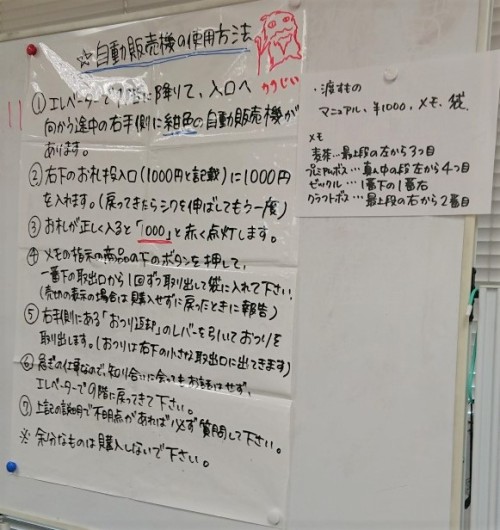 ☆自動販売機の使用方法
うりじい
① エレベーターで1階に降りて、入口へ
向かう途中の右手側に紺色の自動販売機が
あります。
② 右下のお札投入口(1000円と記載)に1000円
を入れます。(戻ってきたらシワを伸ばしてもう一度)
③ お札が正しく入ると「1000」と赤く点灯します。
④ メモの指示の商品の下のボタンを押して、
一番下の取出口から1回ずつ取り出して袋に入れて下さい。
(売切の表示の場合は購入せずに戻ったときに報告)
⑤ 右手側にある「おつり返却」のレバーを引いておつりを
取り出します。(おつりは右下の小さな取出口に出てきます)
⑥ 急ぎの仕事なので、知り合いに会ってもお話はせず、
エレベーターで9階に戻ってきて下さい。
⑦ 上記の説明で不明点があれば必ず質問して下さい。
※ 余分なものは購入しないで下さい。
・渡すもの
マニュアル、¥1000、メモ、袋
メモ
麦茶…最上段の左から3つ目
プレミアムボス…真ん中の段 左から4つ目
ビックル…1番下の1番右
クラフトボス…最上段の右から2番目